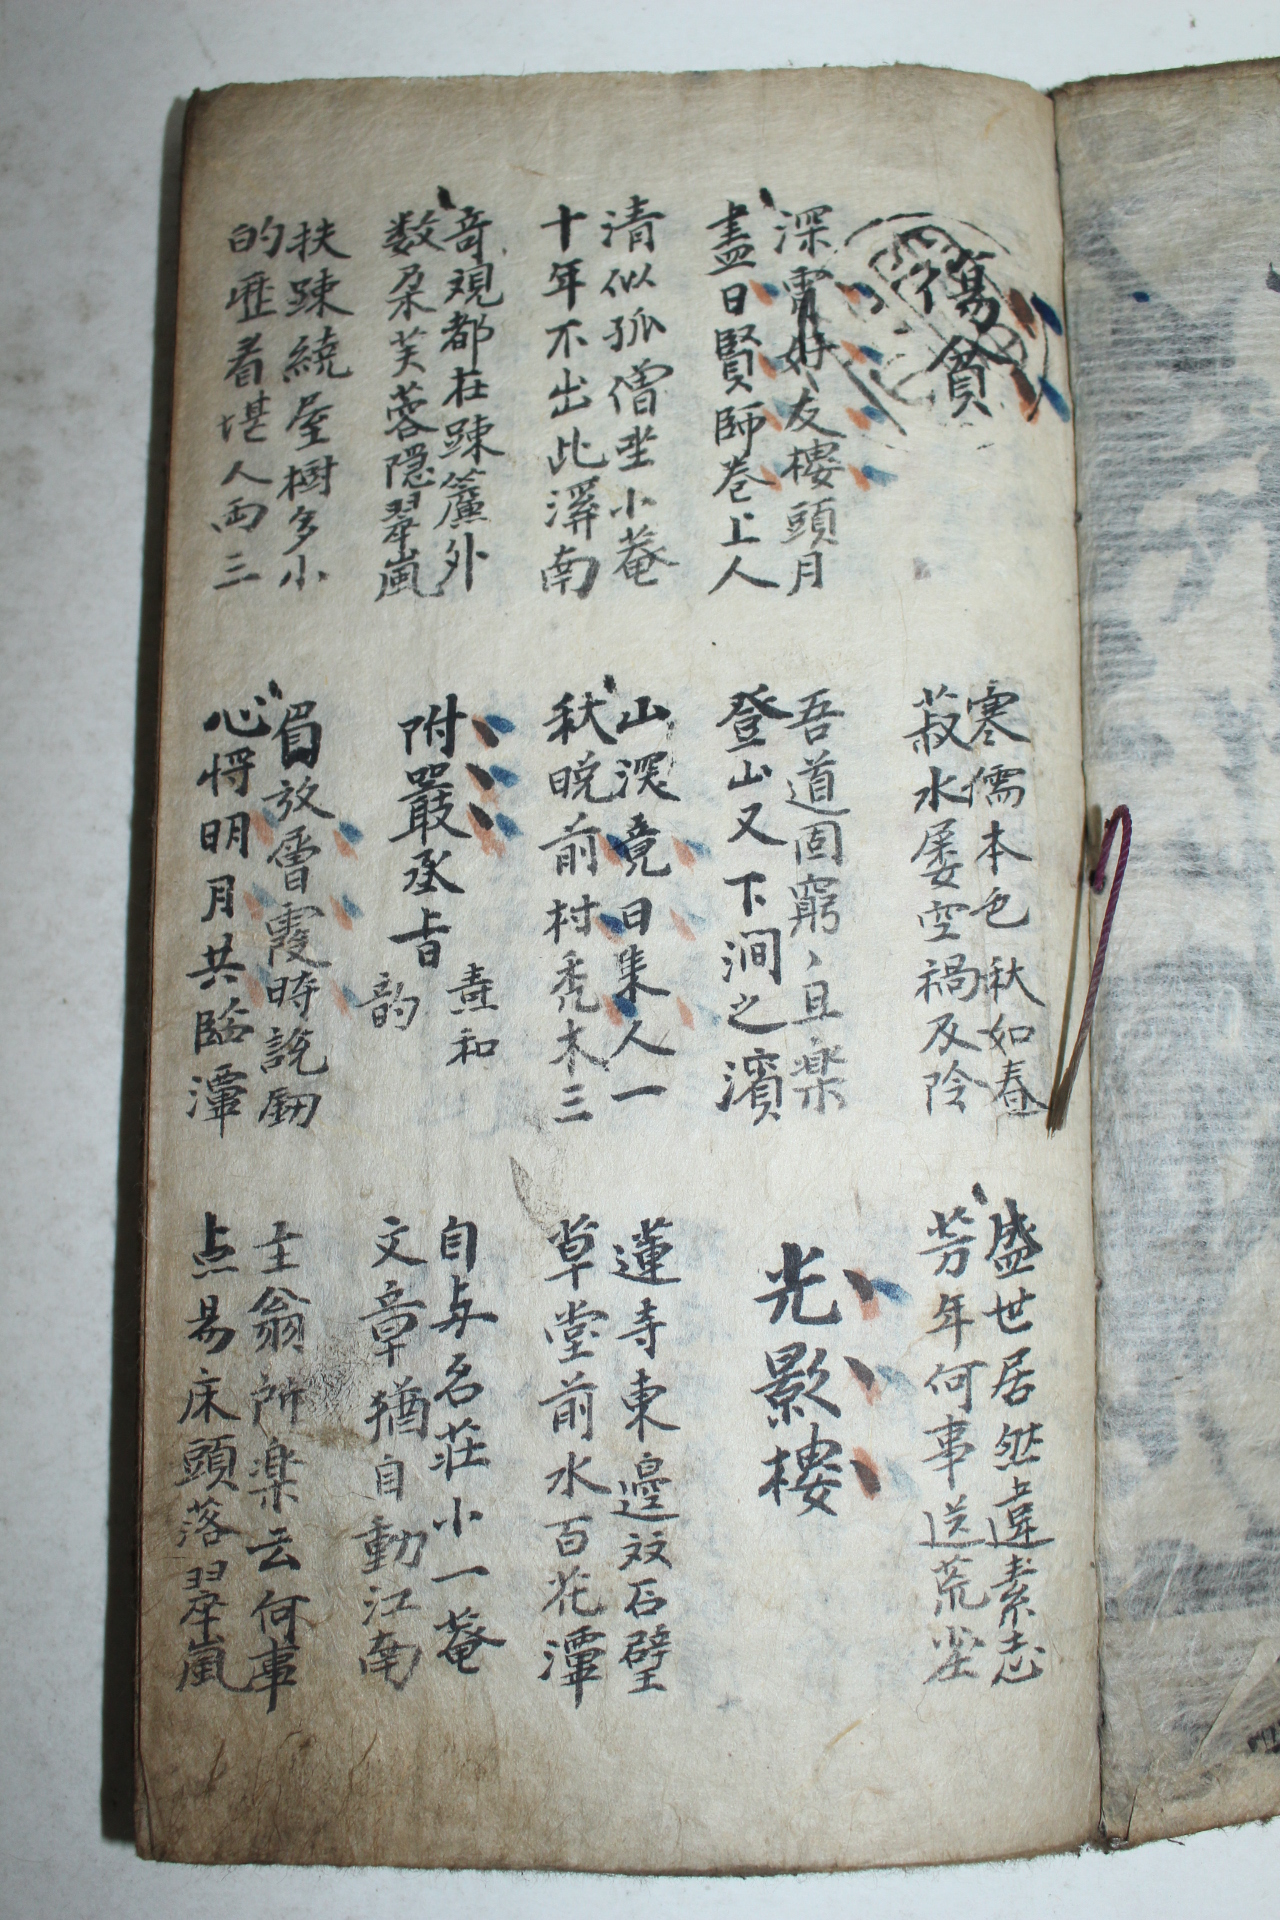 傷貧
寒儒本色秋如春
菽水屡空禍及阾
盛世居然違素志
芳年何事送荒尘
深宵好友樓頭月
盡日賢師卷上人
吾道固窮〻且楽
登山又下澗之濱
光影樓
清似孤僧坐小菴
十年不出此溪南
山深竟日集人一
秋晩前村禿木三
蓮寺東邊双石壁
草堂前水百花潭
奇观都在踈簾外
数朶芙蓉隠翠嵐
附嚴丞旨
熹和
韵
自与名荘小一菴
文章猶自動江南
扶踈繞屋樹多小
的歴看堪人両三
眉放雲霞時説剱
心将明月共臨潭
主翁所楽云何事
点易床頭落翠嵐